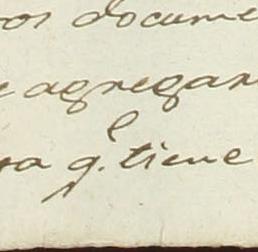 ros docume
e agregar
ra q.e tiene